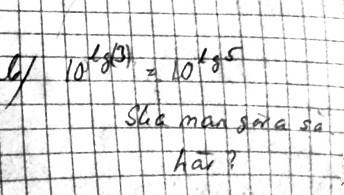 b) 10^lg(3) = 10^lg5
Ska man göra så
här?